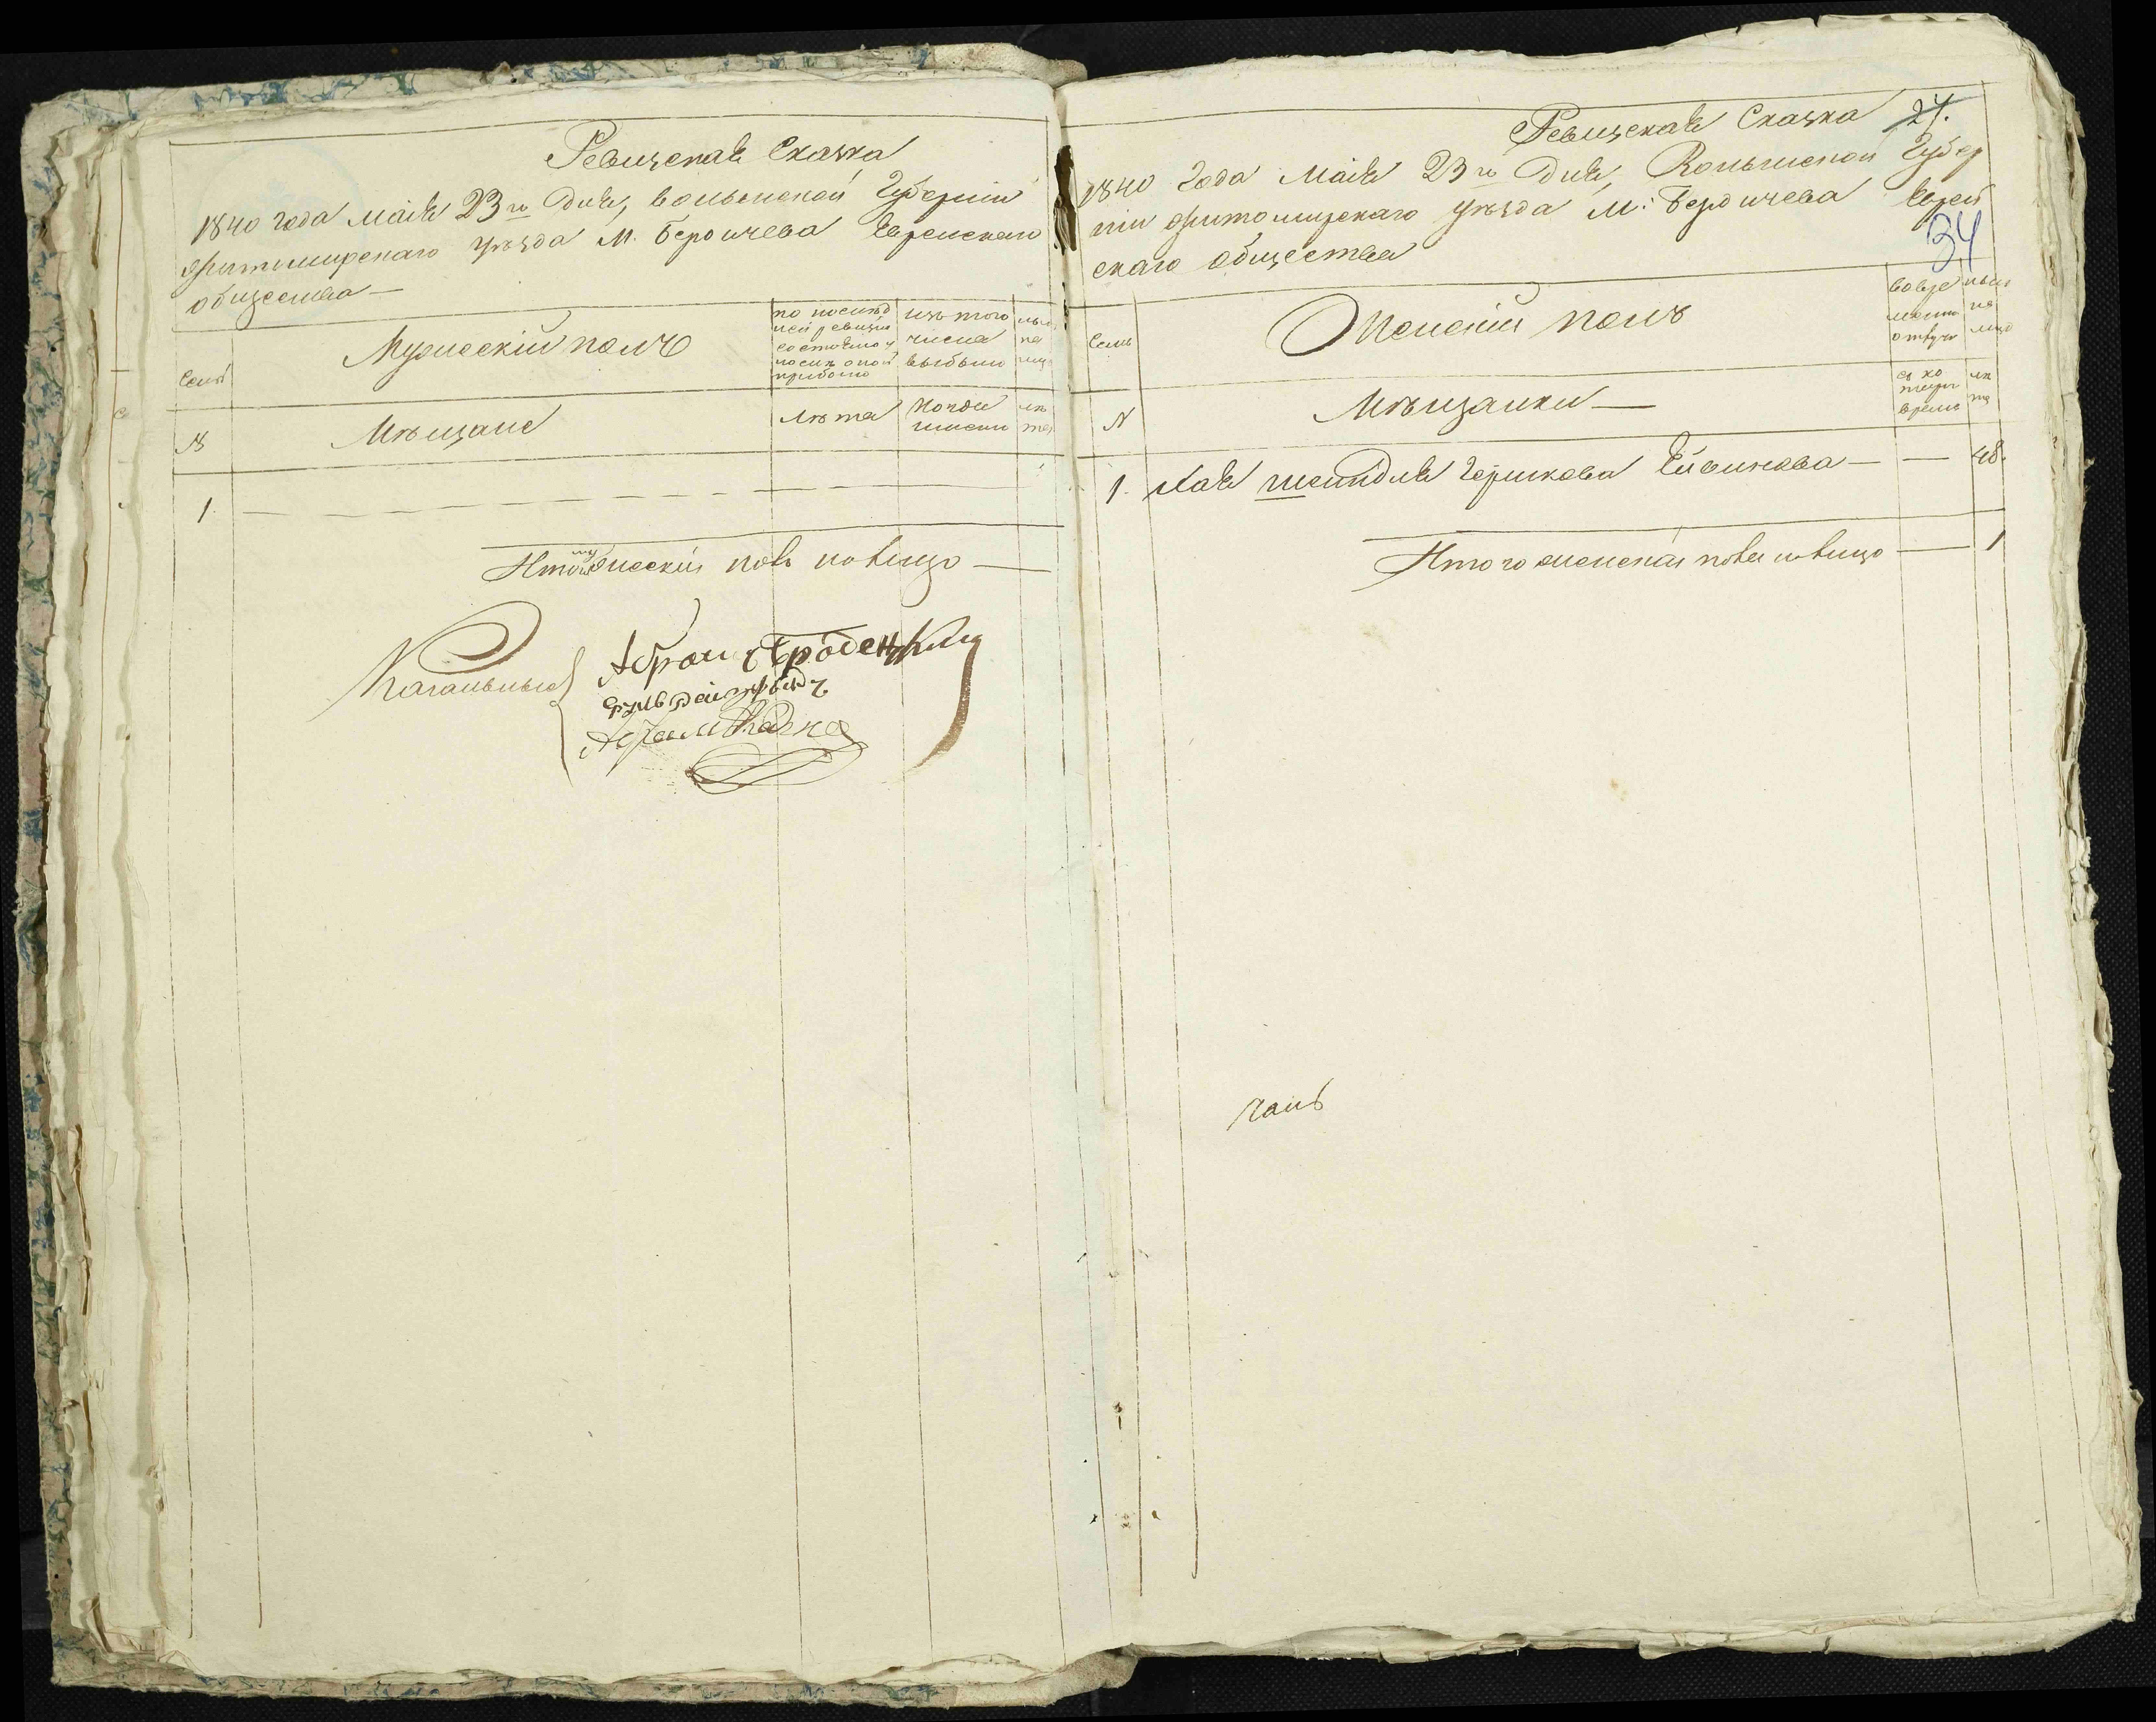 Ревизская Сказка
1840 года Маія 23го Дня, волынской Губерніи
Житомирскаго уѣзда М. Бердичева Еврейскаго
общества —
Семей
Мужескій полъ
по послѣд
ней ревизіи
состояло и
послѣ оной
прибыло
изъ того
числа
выбыло
ныне
на
лицо
№
Мѣщане
Лѣта
Когда
именно
лѣ
та
1.
Итого мужескій полъ на лицо —
Кагальные
Абрамъ Бродецкий
Абрам
Ревизская Сказка 27.
34
1840 Года Маія 23го Дня, Волынской Губер
ніи Житомирскаго уѣзда М: Бердичева Еврей
скаго общества
Семь
Женскій полъ
во вре
менн
отлуч
ныне
на
лицо
№
Мѣщанки —
съ ко
тораго
время
лѣ
та
1. Хая Шейндля Гершкова — — 48.
Итого женскаго пола на лицо — 1